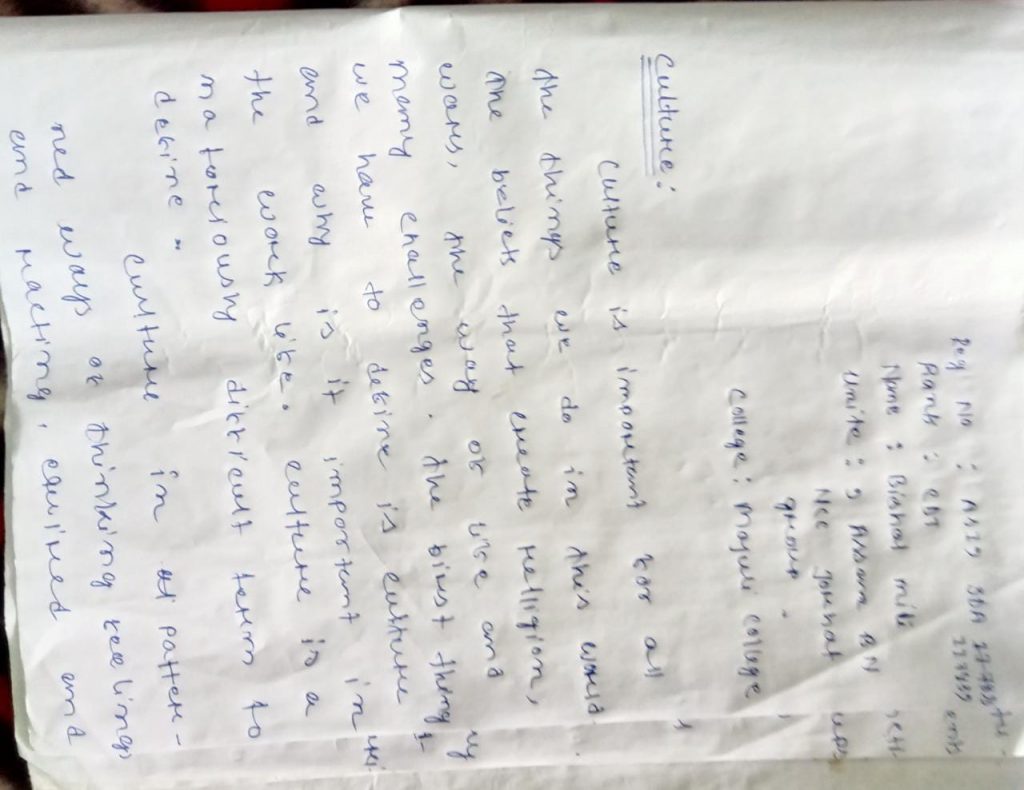 Reg No : AS19 SDA
Rank : CDT
Name : Bishal mili
unite : 5 Assam BN
Ncc Jorhat
group .
College : Majuli College
Culture :
culture is important for all
the things we do in this world.
The beliefs that create relligion,
wars, the way of life and
many challenges. The birst thing
we have to define is culture
and why is it important in
the work life. culture is a
notoriously difficult term to
define "
culture in at patter-
ned ways of thinking feelings
and reacting, equired and